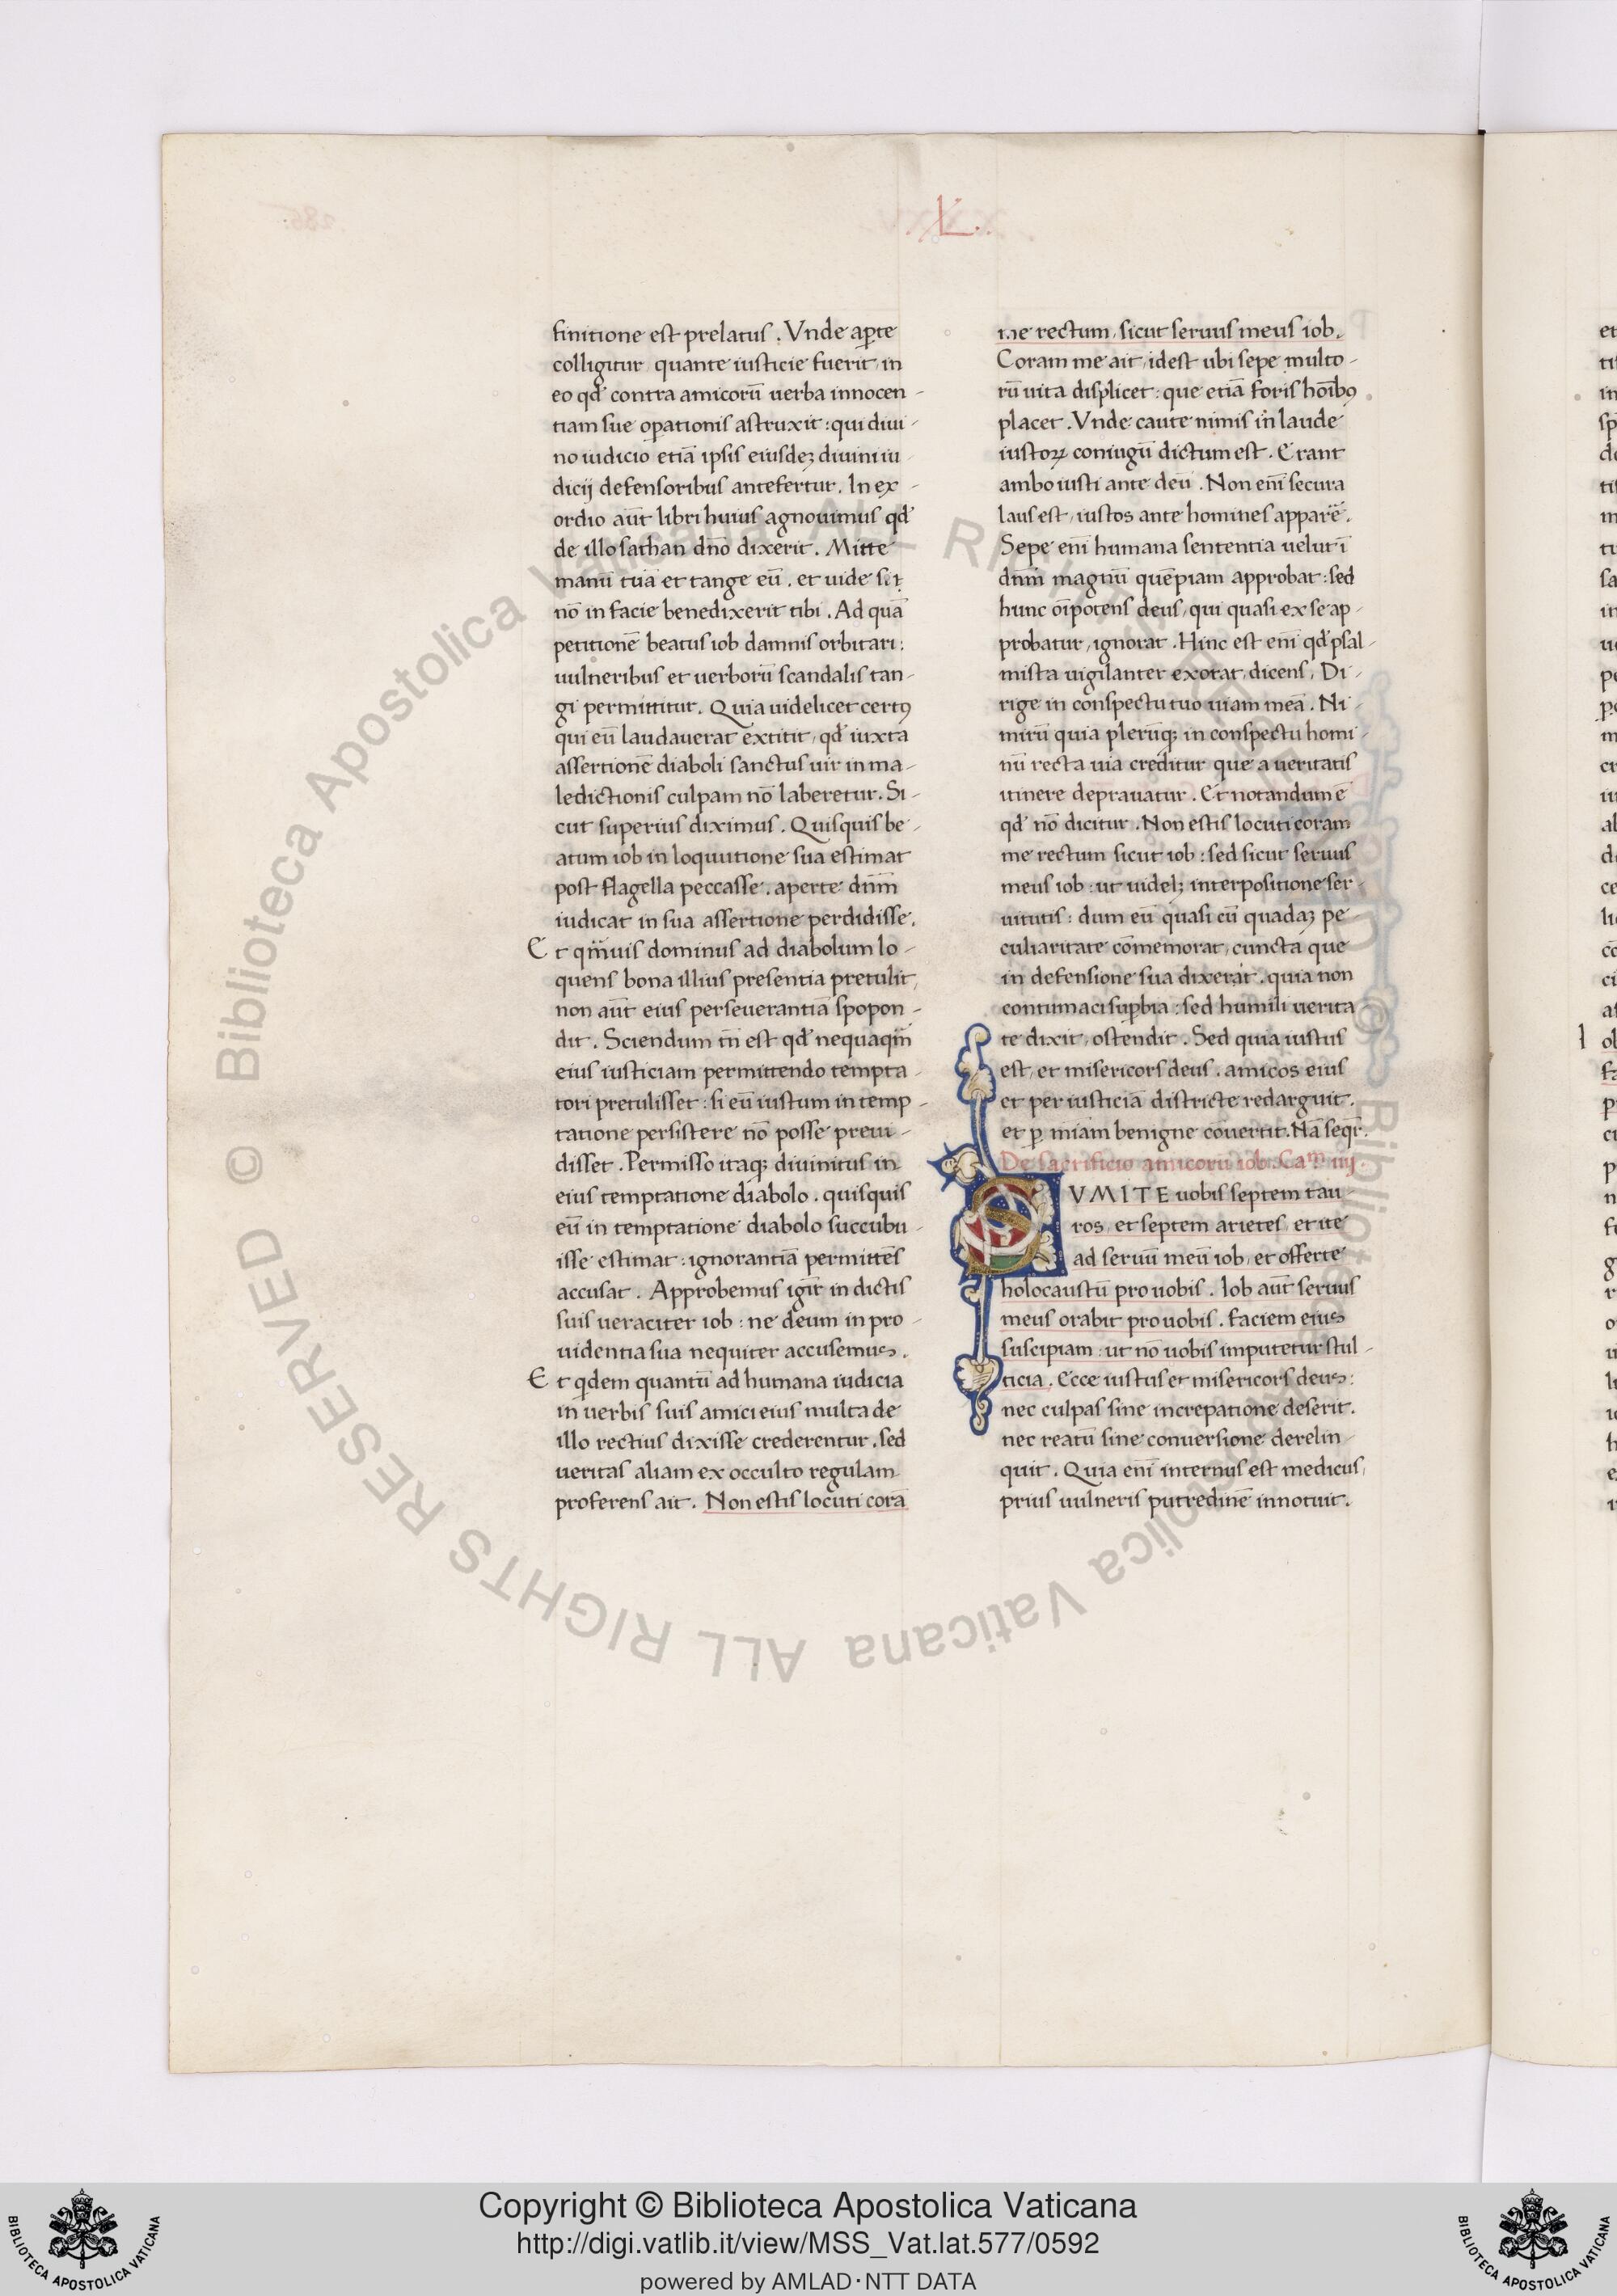 .L.
finitione est prelatus . Vnde aꝑte
colligitur, quante iusticie fuerit, in
eo qđ contra amicorū uerba innocen-
tiam sue oꝑationis astruxit : qui diui-
no iudicio etiā ipsis eiusdeꝫ diuini iu-
dicij defensoribus antefertur . In ex-
ordio aūt libri huius agnouimus qđ
de illo sathan dño dixerit . Mitte
manū tuā et tange eū . et uide si
nō in facie benedixerit tibi . Ad quā
petitionē beatus iob damnis orbitari :
uulneribus et uerborū scandalis tan-
gi permittitur . Quia uidelicet certꝰ
qui eū laudauerat extitit, qđ iuxta
assertionē diaboli sanctus uir in ma-
ledictionis culpam nō laberetur . Si-
cut superius diximus . Quisquis be-
atum iob in loquutione sua estimat
post flagella peccasse . aperte dnm̄
iudicat in sua assertione perdidisse .
Et qm̄uis dominus ad diabolum lo-
quens bona illius presentia pretulit,
non aūt eius perseuerantiā spopon-
dit . Sciendum tn̄ est qđ nequaqm̄
eius iusticiam permittendo tempta-
tori pretulisset : si eū iustum in temp-
tatione persistere nō posse preui-
disset . Permisso itaqꝫ diuinitus in
eius temptatione diabolo . quisquis
eū in temptatione diabolo succubu-
isse estimat : ignorantiā permittēs
accusat . Approbemus igit̄ in dictis
suis ueraciter iob : ne deum in pro-
uidentia sua nequiter accusemus .
Et qdem quantū ad humana iudicia
in uerbis suis amici eius multa de
illo rectius dixisse crederentur . sed
ueritas aliam ex occulto regulam
proferens ait . Non estis locuti corā
me rectum, sicut seruus meus iob .
Coram me ait, idest ubi sepe multo-
rū uita displicet : que etiā foris hoībꝰ
placet . Vnde caute nimis in laude
iustoꝝ coniugū dictum est . Erant
ambo iusti ante deū . Non enī secura
laus est, iustos ante homines apparē .
Sepe enī humana sententia uelut ī
dnm̄ magnū quēpiam approbat : sed
hunc oīpotens deus, qui quasi ex se ap-
probatur, ignorat . Hinc est enī qđ psal-
mista uigilanter exorat, dicens, Di-
rige in conspectu tuo uiam meā . Ni-
mirū quia plerūqꝫ in conspectu homi-
nū recta uia creditur que a ueritatis
itinere deprauatur . Et notandum ē
qđ nō dicitur . Non estis locuti coram
me rectum sicut iob : sed sicut seruus
meus iob : ut uidelꝫ interpositione ser-
uitutis : dum eū quasi cū quadaꝫ pe-
culiaritate cōmemorat, cuncta que
in defensione sua dixerat . quia non
contumaci suꝑbia : sed humili uerita-
te dixit, ostendit . Sed quia iustus
est, et misericors deus . amicos eius
et per iusticiā districte redarguit .
et ꝑ miam benigne cōuertit . Nā seqr̄ .
De sacrificio amicorū iob . Caᵐ iiij .
SVMITE uobis septem tau-
ros, et septem arietes, et ite
ad seruū meū iob, et offerte
holocaustū pro uobis . Iob aūt seruus
meus orabit pro uobis . faciem eius
suscipiam : ut nō uobis imputetur stul-
ticia . Ecce iustus et misericors deus :
nec culpas sine increpatione deserit .
nec reatū sine conuersione derelin-
quit . Quia enī internus est medicus,
prius uulneris putredinē innotuit .
© Biblioteca Apostolica Vaticana ALL RIGHTS RESERVED © Biblioteca Apostolica Vaticana ALL RIGHTS RESERVED
Copyright © Biblioteca Apostolica Vaticana
http://digi.vatlib.it/view/MSS_Vat.lat.577/0592
powered by AMLAD·NTT DATA
BIBLIOTECA APOSTOLICA VATICANA
BIBLIOTECA APOSTOLICA VATICANA